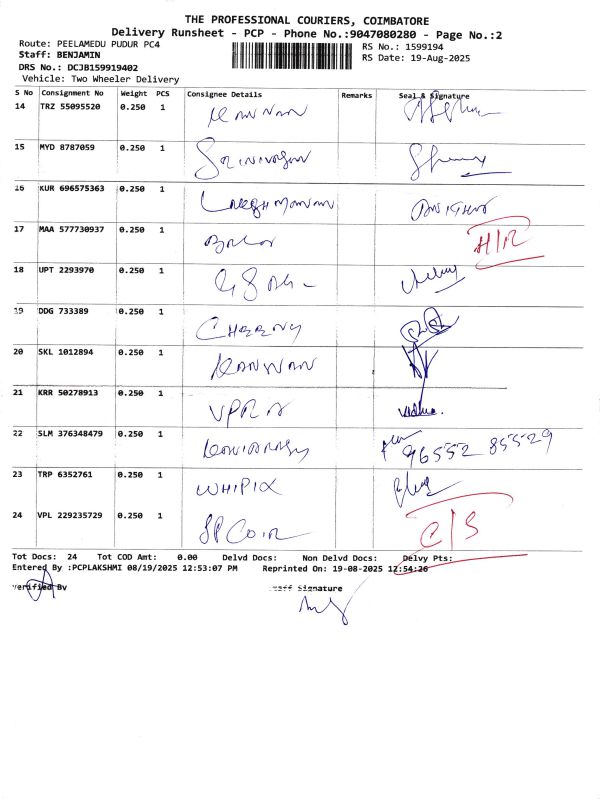 THE PROFESSIONAL COURIERS, COIMBATORE
Delivery Runsheet - PCP - Phone No.:9047080280 - Page No.:2
Route: PEELAMEDU PUDUR PC4 RS No.: 1599194
Staff: BENJAMIN RS Date: 19-Aug-2025
DRS No.: DCJB159919402
Vehicle: Two Wheeler Delivery
S No Consignment No Weight PCS Consignee Details Remarks Seal & Signature
14 TRZ 55095520 0.250 1 KANNAN
15 MYD 8787059 0.250 1
16 KUR 696575363 0.250 1
17 MAA 577730937 0.250 1 H/R
18 UPT 2293970 0.250 1
19 DDG 733389 0.250 1 CHERNY
20 SKL 1012894 0.250 1 KANNAN
21 KRR 50278913 0.250 1
22 SLM 376348479 0.250 1 96552 85529
23 TRP 6352761 0.250 1 WHIPIX
24 VPL 229235729 0.250 1 C/S
Tot Docs: 24 Tot COD Amt: 0.00 Delvd Docs: Non Delvd Docs: Delvy Pts:
Entered By :PCPLAKSHMI 08/19/2025 12:53:07 PM Reprinted On: 19-08-2025 12:54:26
Verified By Staff Signature